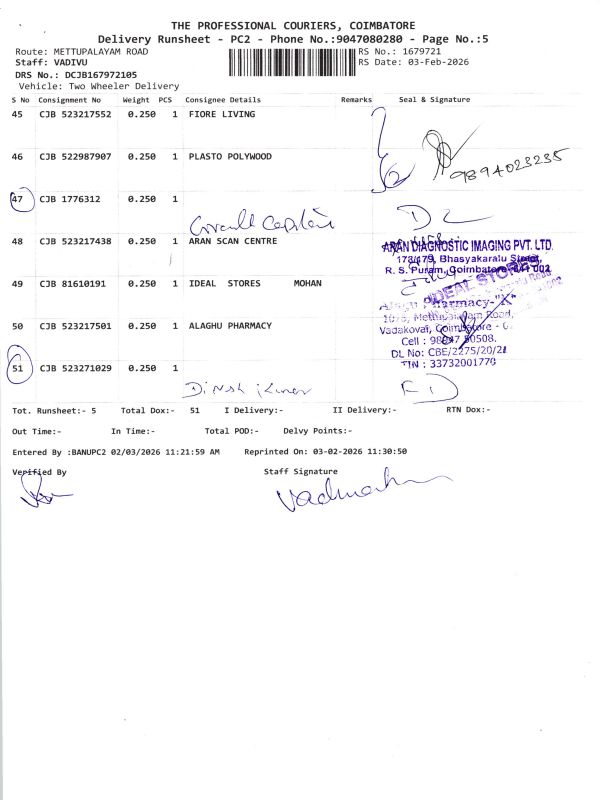 THE PROFESSIONAL COURIERS, COIMBATORE
Delivery Runsheet - PC2 - Phone No.:9047080280 - Page No.:5
Route: METTUPALAYAM ROAD
RS No.: 1679721
Staff: VADIVU
RS Date: 03-Feb-2026
DRS No.: DCJB167972105
Vehicle: Two Wheeler Delivery
S No Consignment No Weight PCS Consignee Details Remarks Seal & Signature
45 CJB 523217552 0.250 1 FIORE LIVING
46 CJB 522987907 0.250 1 PLASTO POLYWOOD
9894023235
47 CJB 1776312 0.250 1
48 CJB 523217438 0.250 1 ARAN SCAN CENTRE
ARAN DIAGNOSTIC IMAGING PVT. LTD.
178/179, Bhasyakaralu Street,
R. S. Puram, Coimbatore-641 002
49 CJB 81610191 0.250 1 IDEAL STORES MOHAN
IDEAL STORES
50 CJB 523217501 0.250 1 ALAGHU PHARMACY
Pharmacy-"X"
Road,
Vadakovai, Coimbatore -
Cell : 98847 50508.
DL No: CBE/2275/20/21
TIN : 33732001770
51 CJB 523271029 0.250 1
Dinesh Kumar
Tot. Runsheet:- 5 Total Dox:- 51 I Delivery:- II Delivery:- RTN Dox:-
Out Time:- In Time:- Total POD:- Delvy Points:-
Entered By :BANUPC2 02/03/2026 11:21:59 AM Reprinted On: 03-02-2026 11:30:50
Verified By Staff Signature